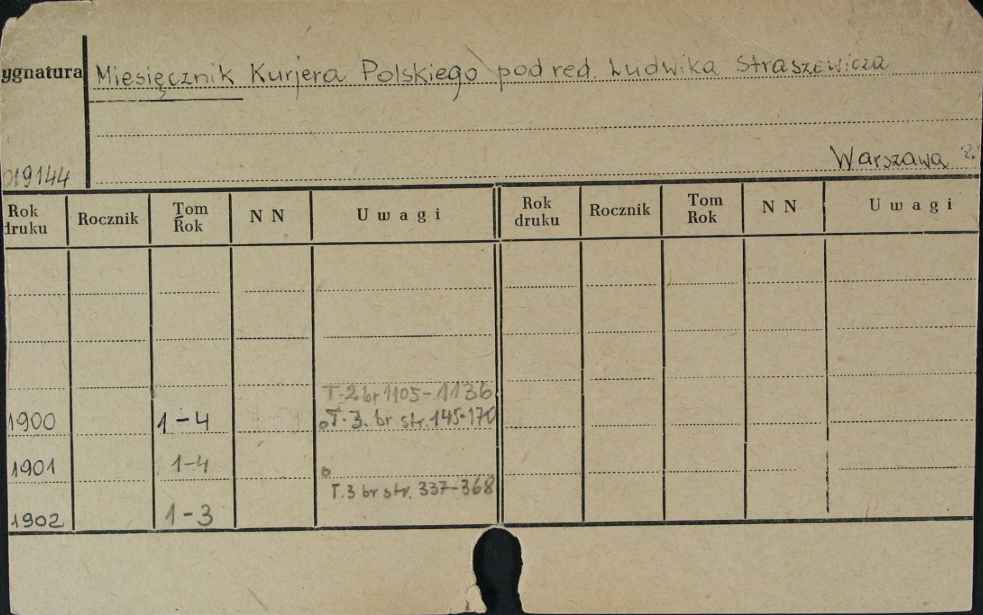 ygnatura Miesięcznik Kurjera Polskiego pod red. Ludwika Straszewicza
Warszawa
019144
Rok druku Rocznik Tom Rok N N Uwagi Rok druku Rocznik Tom Rok N N Uwagi
T.2 br 1105-1136
1900 1-4 T.3. br str. 145-170
1901 1-4
T.3 br str. 337-368
1902 1-3